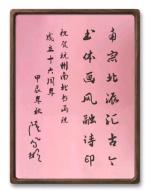 南宗北派汇古今
书体画风融诗印
祝贺杭州南北书画社
成立十六周年
甲辰年秋